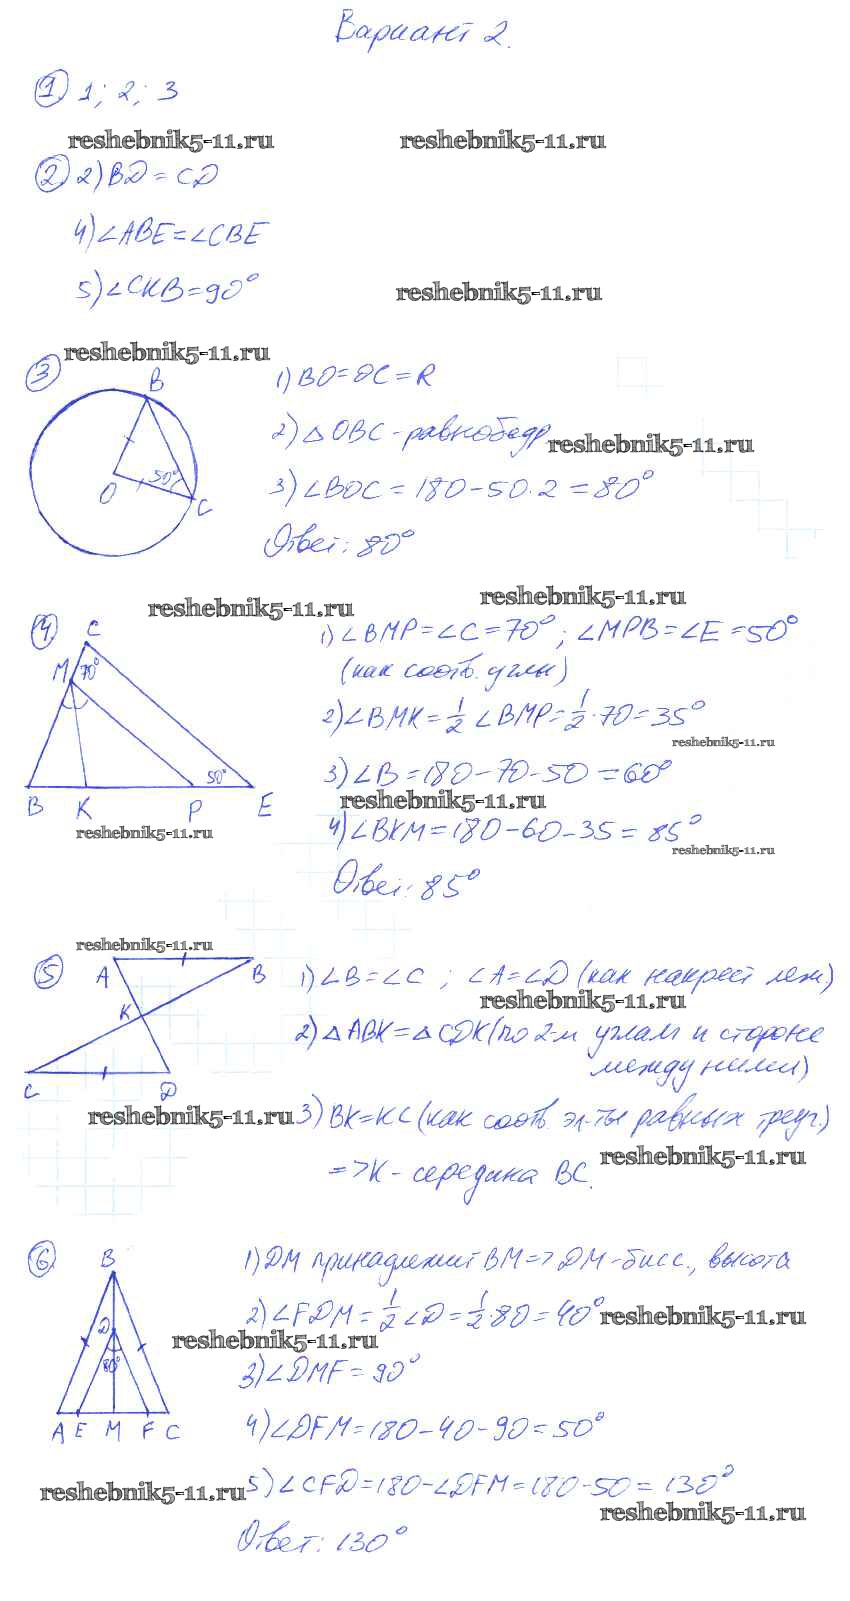 Вариант 2.
1 1; 2; 3
reshebnik5-11.ru reshebnik5-11.ru
2 2) BD = CD
4) ∠ABE = ∠CBE
5) ∠CKB = 90°
reshebnik5-11.ru
reshebnik5-11.ru
3
B
O
50°
C
1) BO = OC = R
2) △OBC - равнобедр
reshebnik5-11.ru
3) ∠BOC = 180 - 50·2 = 80°
Ответ: 80°
reshebnik5-11.ru reshebnik5-11.ru
4
C
M 70°
50°
B K P E
reshebnik5-11.ru
1) ∠BMP = ∠C = 70°; ∠MPB = ∠E = 50°
(как соотв. углы)
2) ∠BMK = 1/2 ∠BMP = 1/2·70 = 35°
reshebnik5-11.ru
3) ∠B = 180 - 70 - 50 = 60°
reshebnik5-11.ru
4) ∠BKM = 180 - 60 - 35 = 85°
reshebnik5-11.ru
Ответ: 85°
reshebnik5-11.ru
5
A B
K
C D
1) ∠B = ∠C; ∠A = ∠D (как накрест леж)
reshebnik5-11.ru
2) △ABK = △CDK (по 2-м углам и стороне
между ними)
reshebnik5-11.ru
3) BK = KC (как соотв. эл-ты равных треуг.)
reshebnik5-11.ru
=> K - середина BC.
6
B
D
80°
A E M F C
1) DM принадлежит BM => DM - бисс., высота
2) ∠FDM = 1/2 ∠D = 1/2·80 = 40°
reshebnik5-11.ru
reshebnik5-11.ru
3) ∠DMF = 90°
4) ∠DFM = 180 - 40 - 90 = 50°
5) ∠CFD = 180 - ∠DFM = 180 - 50 = 130°
reshebnik5-11.ru
reshebnik5-11.ru
Ответ: 130°